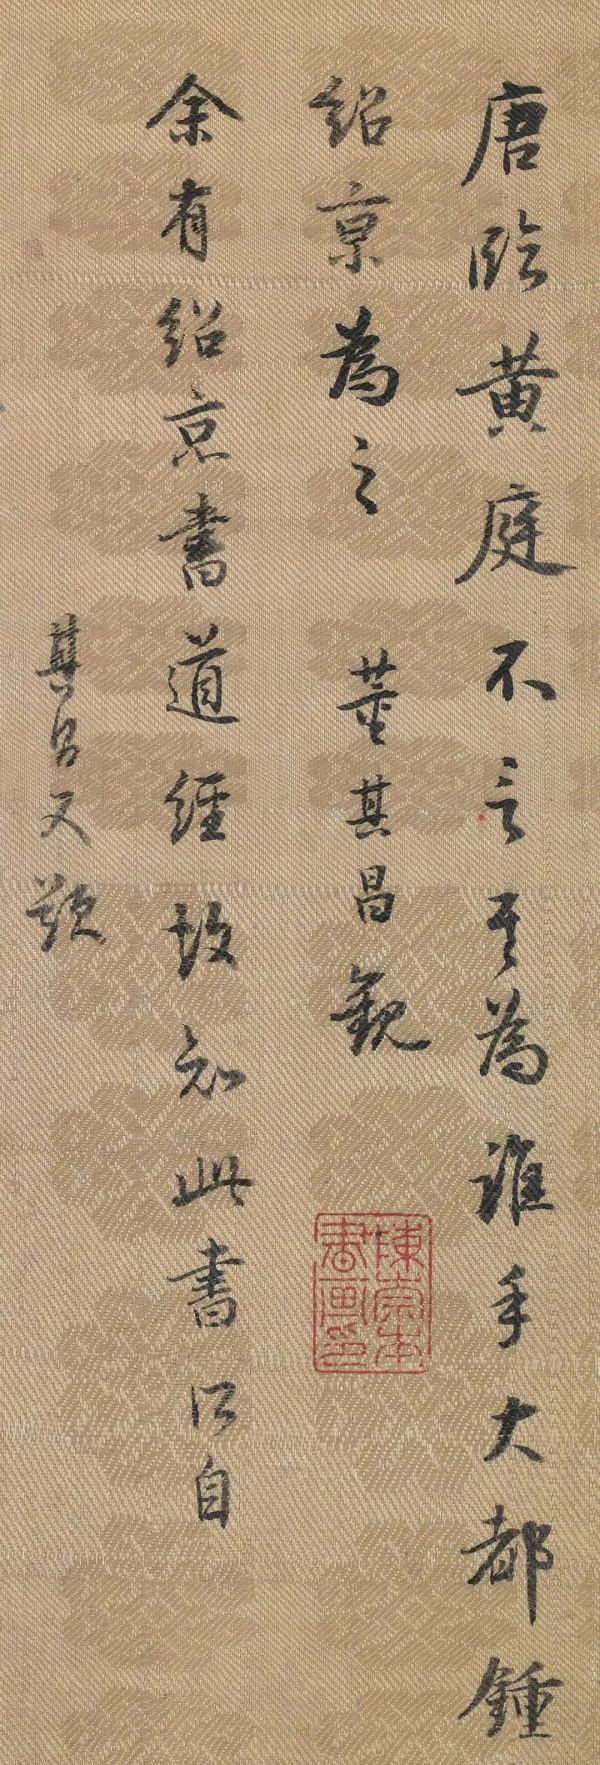 唐臨黄庭不言其為誰手大都鍾
紹京為之　董其昌觀
余有紹京書道經故知此書所自
其昌又題
陳崇本
書畫印